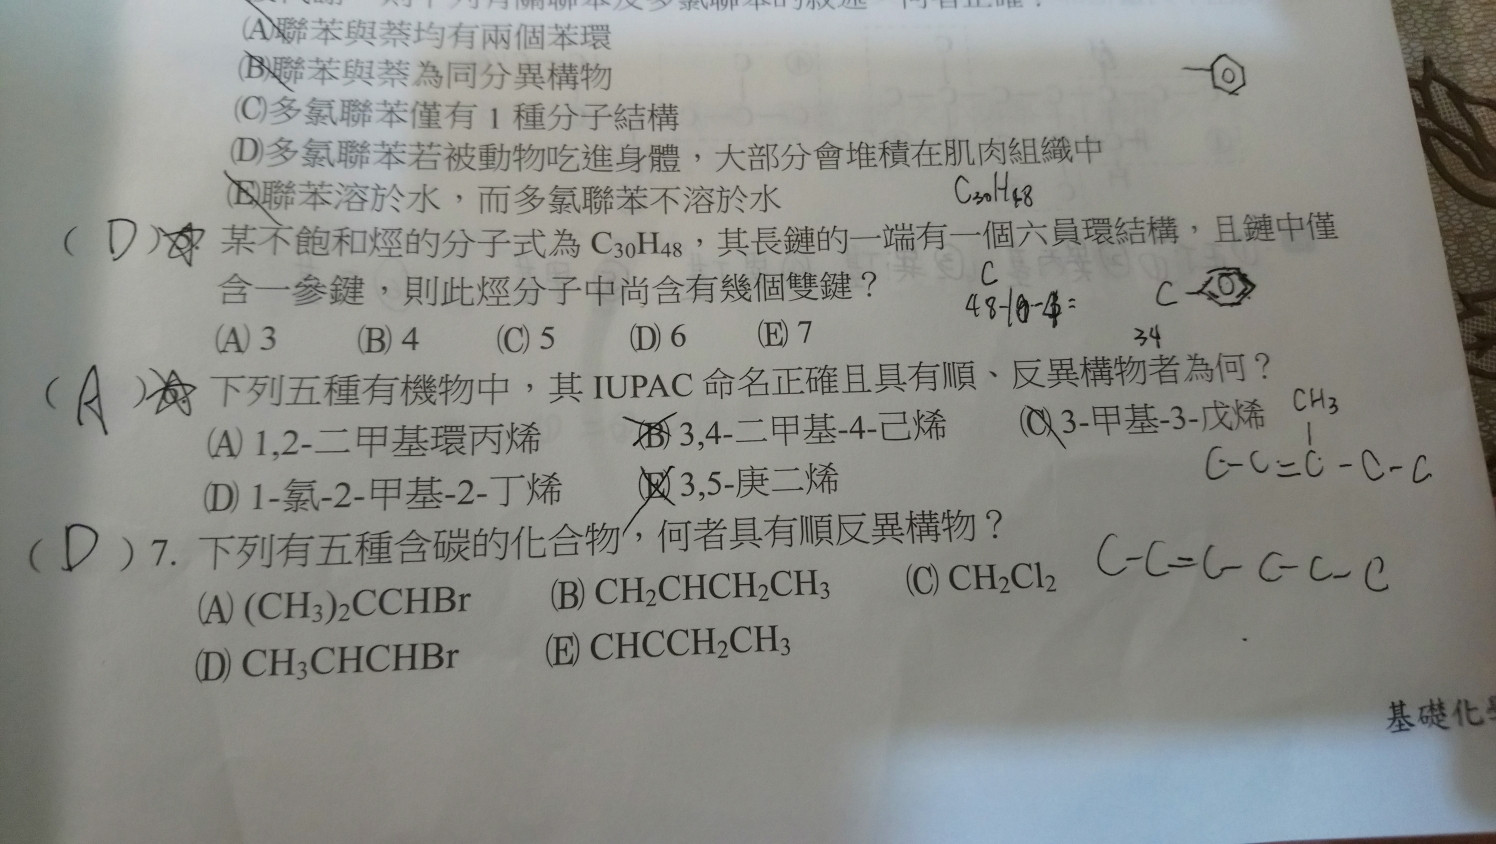 (A)聯苯與萘均有兩個苯環
(B)聯苯與萘為同分異構物
(C)多氯聯苯僅有 1 種分子結構
(D)多氯聯苯若被動物吃進身體，大部分會堆積在肌肉組織中
(E)聯苯溶於水，而多氯聯苯不溶於水
C₃₀H₄₈
( D ) 某不飽和烴的分子式為 C₃₀H₄₈，其長鏈的一端有一個六員環結構，且鏈中僅
含一參鍵，則此烴分子中尚含有幾個雙鍵？
C
C
(A) 3 (B) 4 (C) 5 (D) 6 (E) 7
34
( A ) 下列五種有機物中，其 IUPAC 命名正確且具有順、反異構物者為何？
(A) 1,2-二甲基環丙烯 (B) 3,4-二甲基-4-己烯 (C) 3-甲基-3-戊烯
CH₃
C-C=C-C-C
(D) 1-氯-2-甲基-2-丁烯 (E) 3,5-庚二烯
( D ) 7. 下列有五種含碳的化合物，何者具有順反異構物？
C-C=C-C-C-C
(A) (CH₃)₂CCHBr (B) CH₂CHCH₂CH₃ (C) CH₂Cl₂
(D) CH₃CHCHBr (E) CHCCH₂CH₃
基礎化